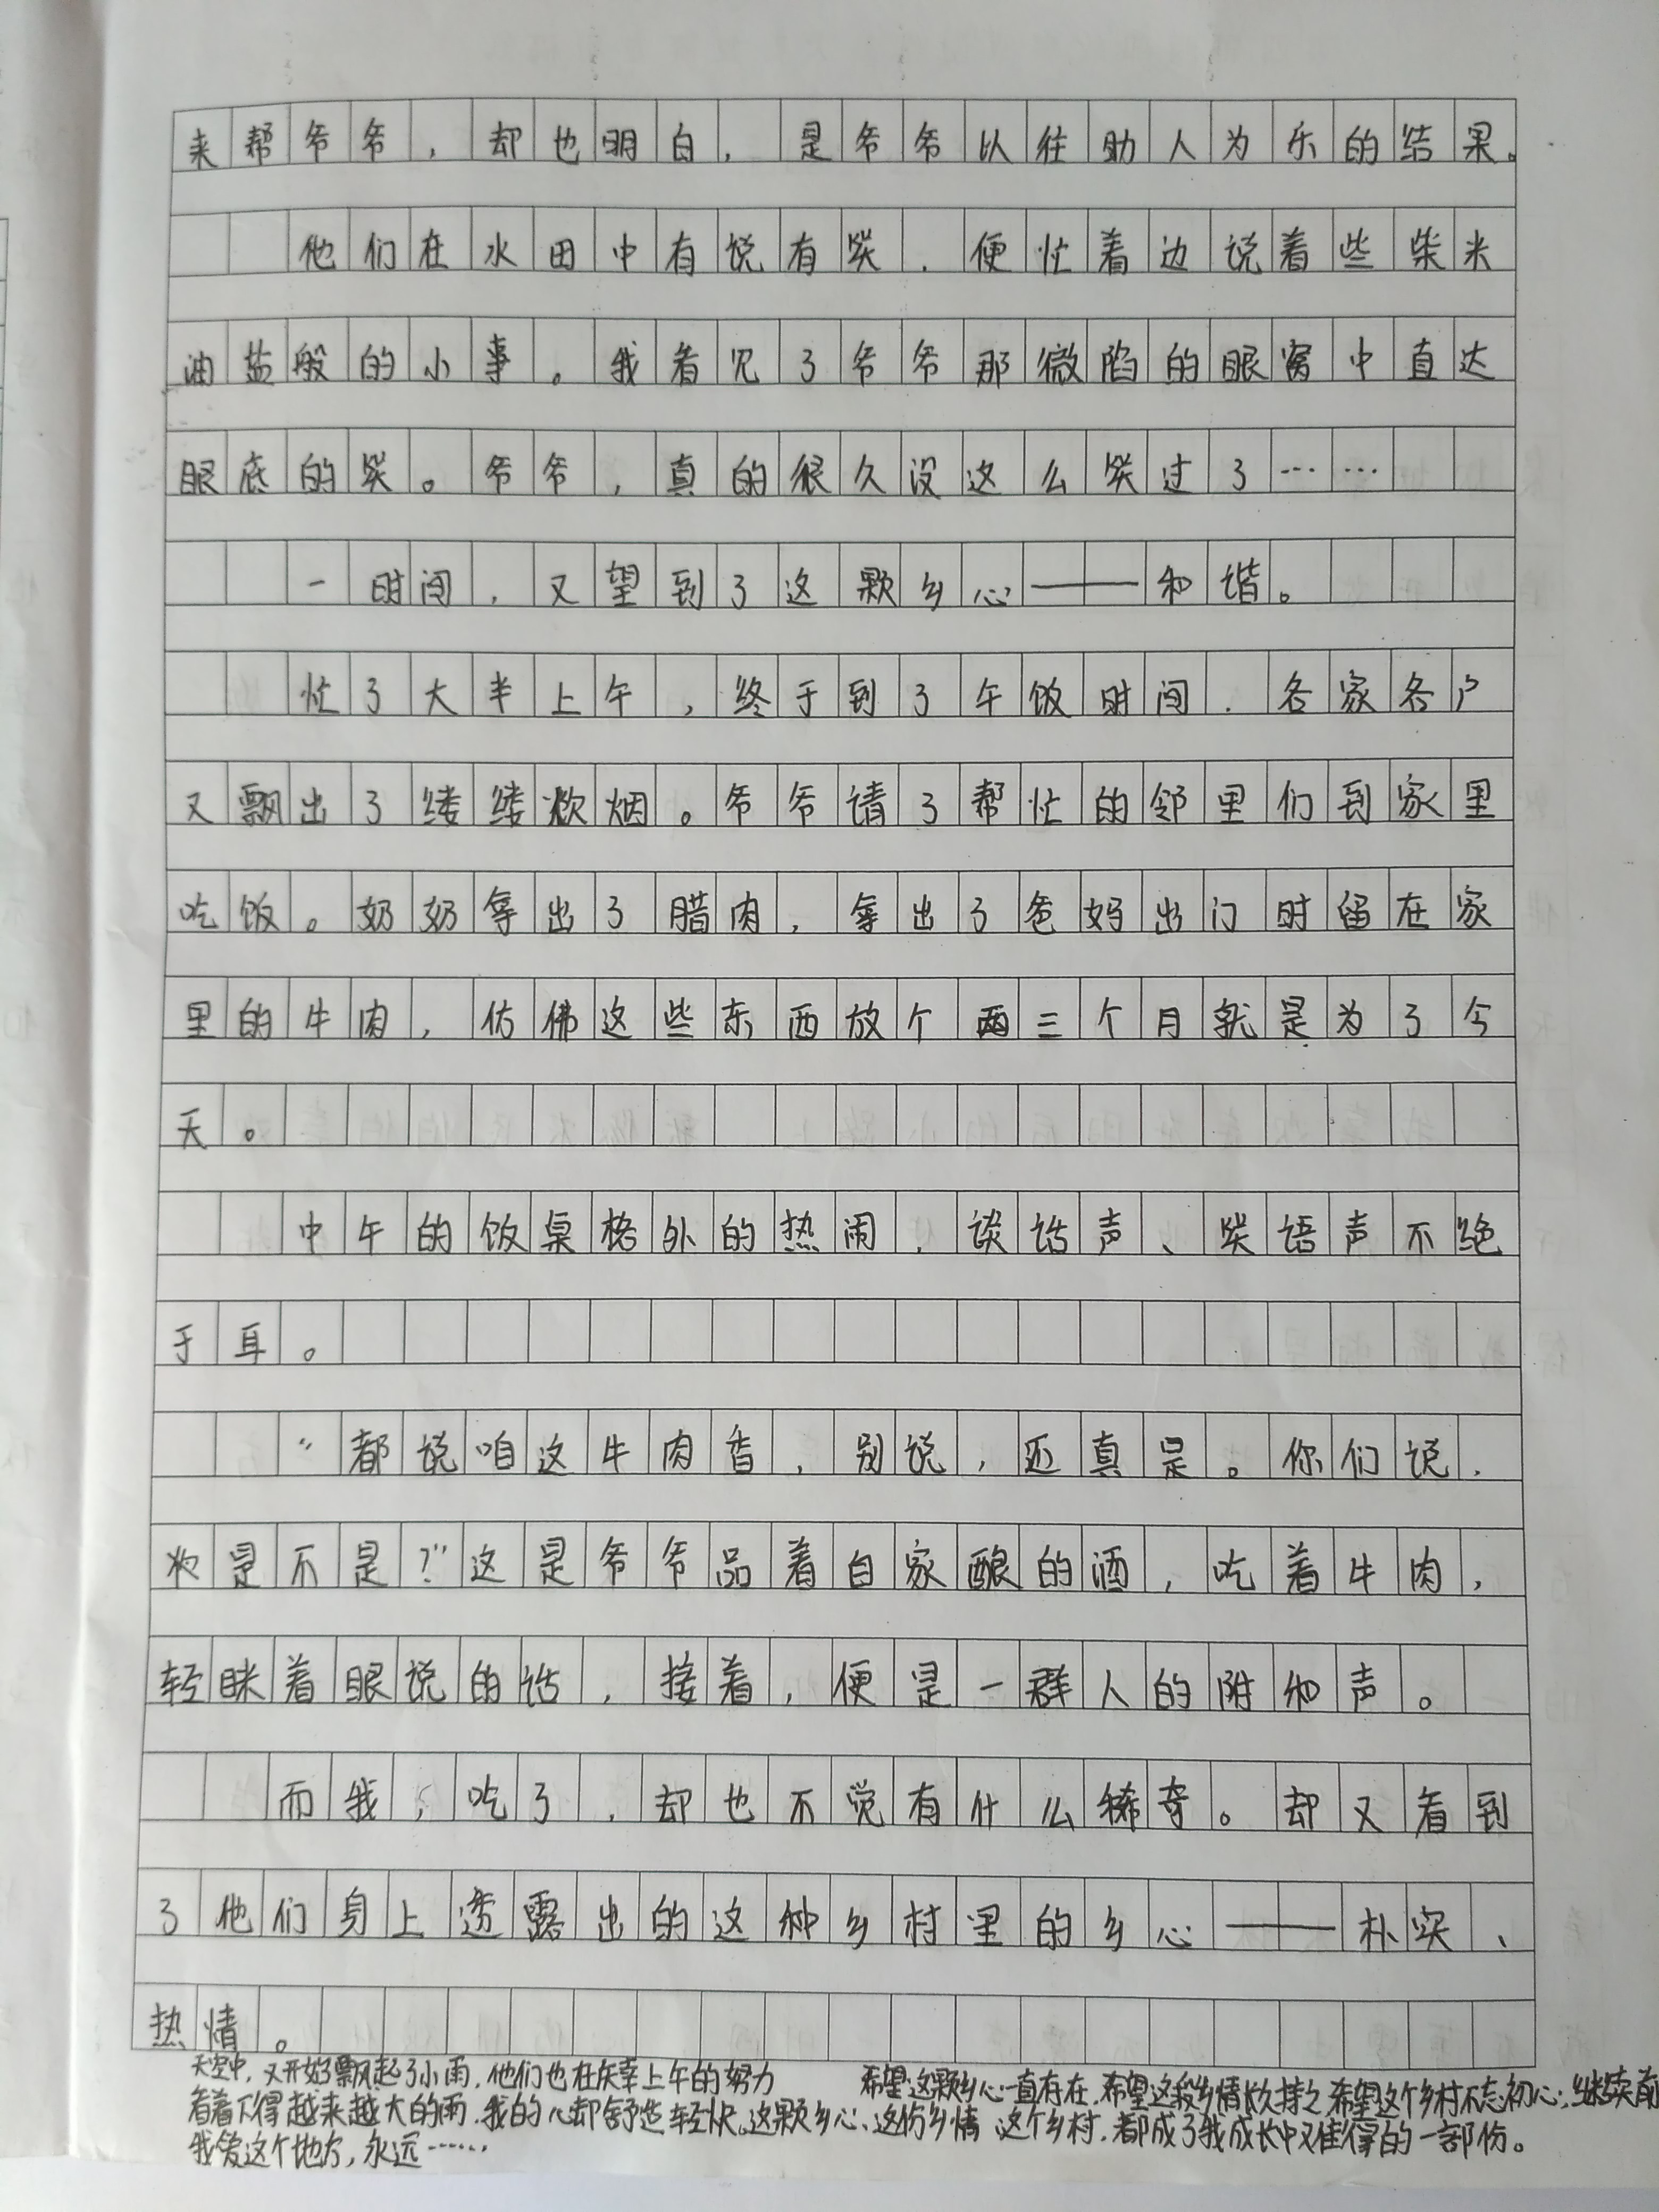 来帮爷爷，却也明白，是爷爷以往助人为乐的结果。
他们在水田中有说有笑，便忙着边说着些柴米
油盐般的小事。我看见了爷爷那微陷的眼窝中直达
眼底的笑。爷爷，真的很久没这么笑过了……
一时间，又望到了这颗乡心——和谐。
忙了大半上午，终于到了午饭时间，各家各户
又飘出了缕缕炊烟。爷爷请了帮忙的邻里们到家里
吃饭。奶奶拿出了腊肉，拿出了爸妈出门时留在家
里的牛肉，仿佛这些东西放个两三个月就是为了今
天。
中午的饭桌格外的热闹，谈话声、笑语声不绝
于耳。
“都说咱这牛肉香，别说，还真是。你们说，
是不是？”这是爷爷品着自家酿的酒，吃着牛肉，
轻眯着眼说的话，接着，便是一群人的附和声。
而我，吃了，却也不觉有什么稀奇。却又看到
了他们身上透露出的这种乡村里的乡心——朴实、
热情。
天空中，又开始飘起了小雨，他们也在庆幸上午的努力
看着下得越来越大的雨，我的心却舒适轻快。这颗乡心、这份乡情、这个乡村，都成了我成长中难得的一部份。
我爱这个地方，永远……
希望这颗乡心一直存在，希望这我乡情长久持之，希望这个乡村不忘初心；继续前